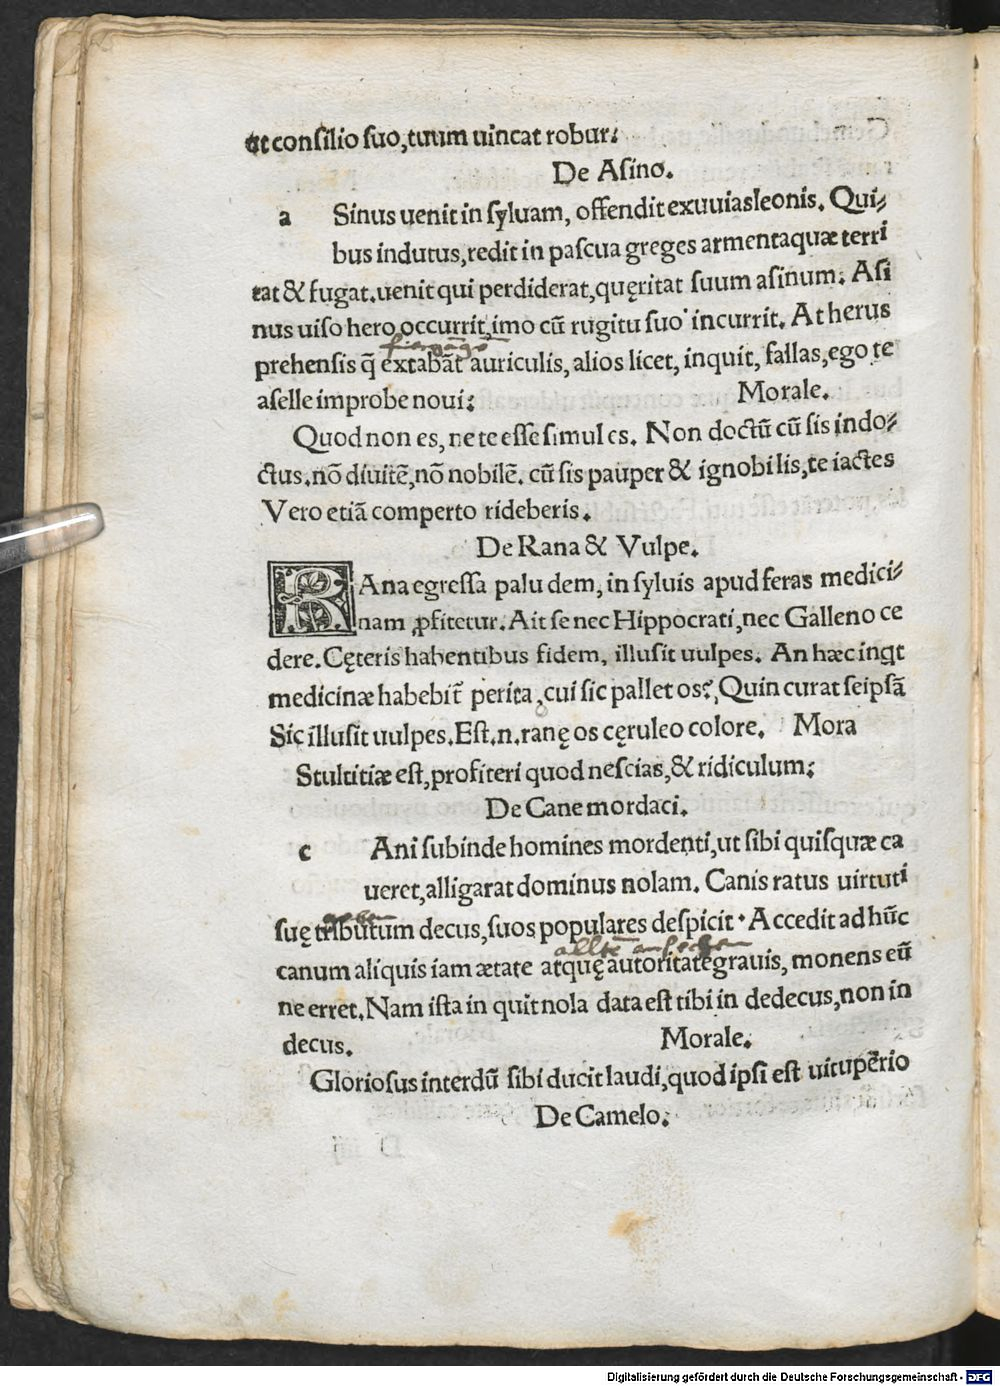 ut consilio suo, tuum uincat robur:
De Asino.
a Sinus uenit in syluam, offendit exuuias leonis. Qui-
bus indutus, redit in pascua greges armentaquæ terri
tat & fugat. uenit qui perdiderat, quęritat suum asinum. Asi
nus uiso hero occurrit, imo cū rugitu suo incurrit. At herus
prehensis q̄ extabāt auriculis, alios licet, inquit, fallas, ego te
aselle improbe noui: Morale.
Quod non es, ne te esse simules. Non doctū cū sis indo-
ctus. nō diuitē, nō nobilē. cū sis pauper & ignobilis, te iactes
Vero etiā comperto rideberis.
De Rana & Vulpe.
RAna egressa paludem, in syluis apud feras medici-
nam ꝓfitetur. Ait se nec Hippocrati, nec Galleno ce
dere. Cęteris habentibus fidem, illusit uulpes. An hæc inqt
medicinæ habebit̄ perita, cui sic pallet os? Quin curat seipsā
Sic illusit uulpes. Est .n. ranę os cęruleo colore. Mora
Stultitiæ est, profiteri quod nescias, & ridiculum:
De Cane mordaci.
c Ani subinde homines mordenti, ut sibi quisquæ ca
ueret, alligarat dominus nolam. Canis ratus uirtuti
suę tributum decus, suos populares despicit. Accedit ad hūc
canum aliquis iam ætate atquę autoritate grauis, monens eū
ne erret. Nam ista inquit nola data est tibi in dedecus, non in
decus. Morale.
Gloriosus interdū sibi ducit laudi, quod ipsi est uitupērio
De Camelo.
Digitalisierung gefördert durch die Deutsche Forschungsgemeinschaft - DFG